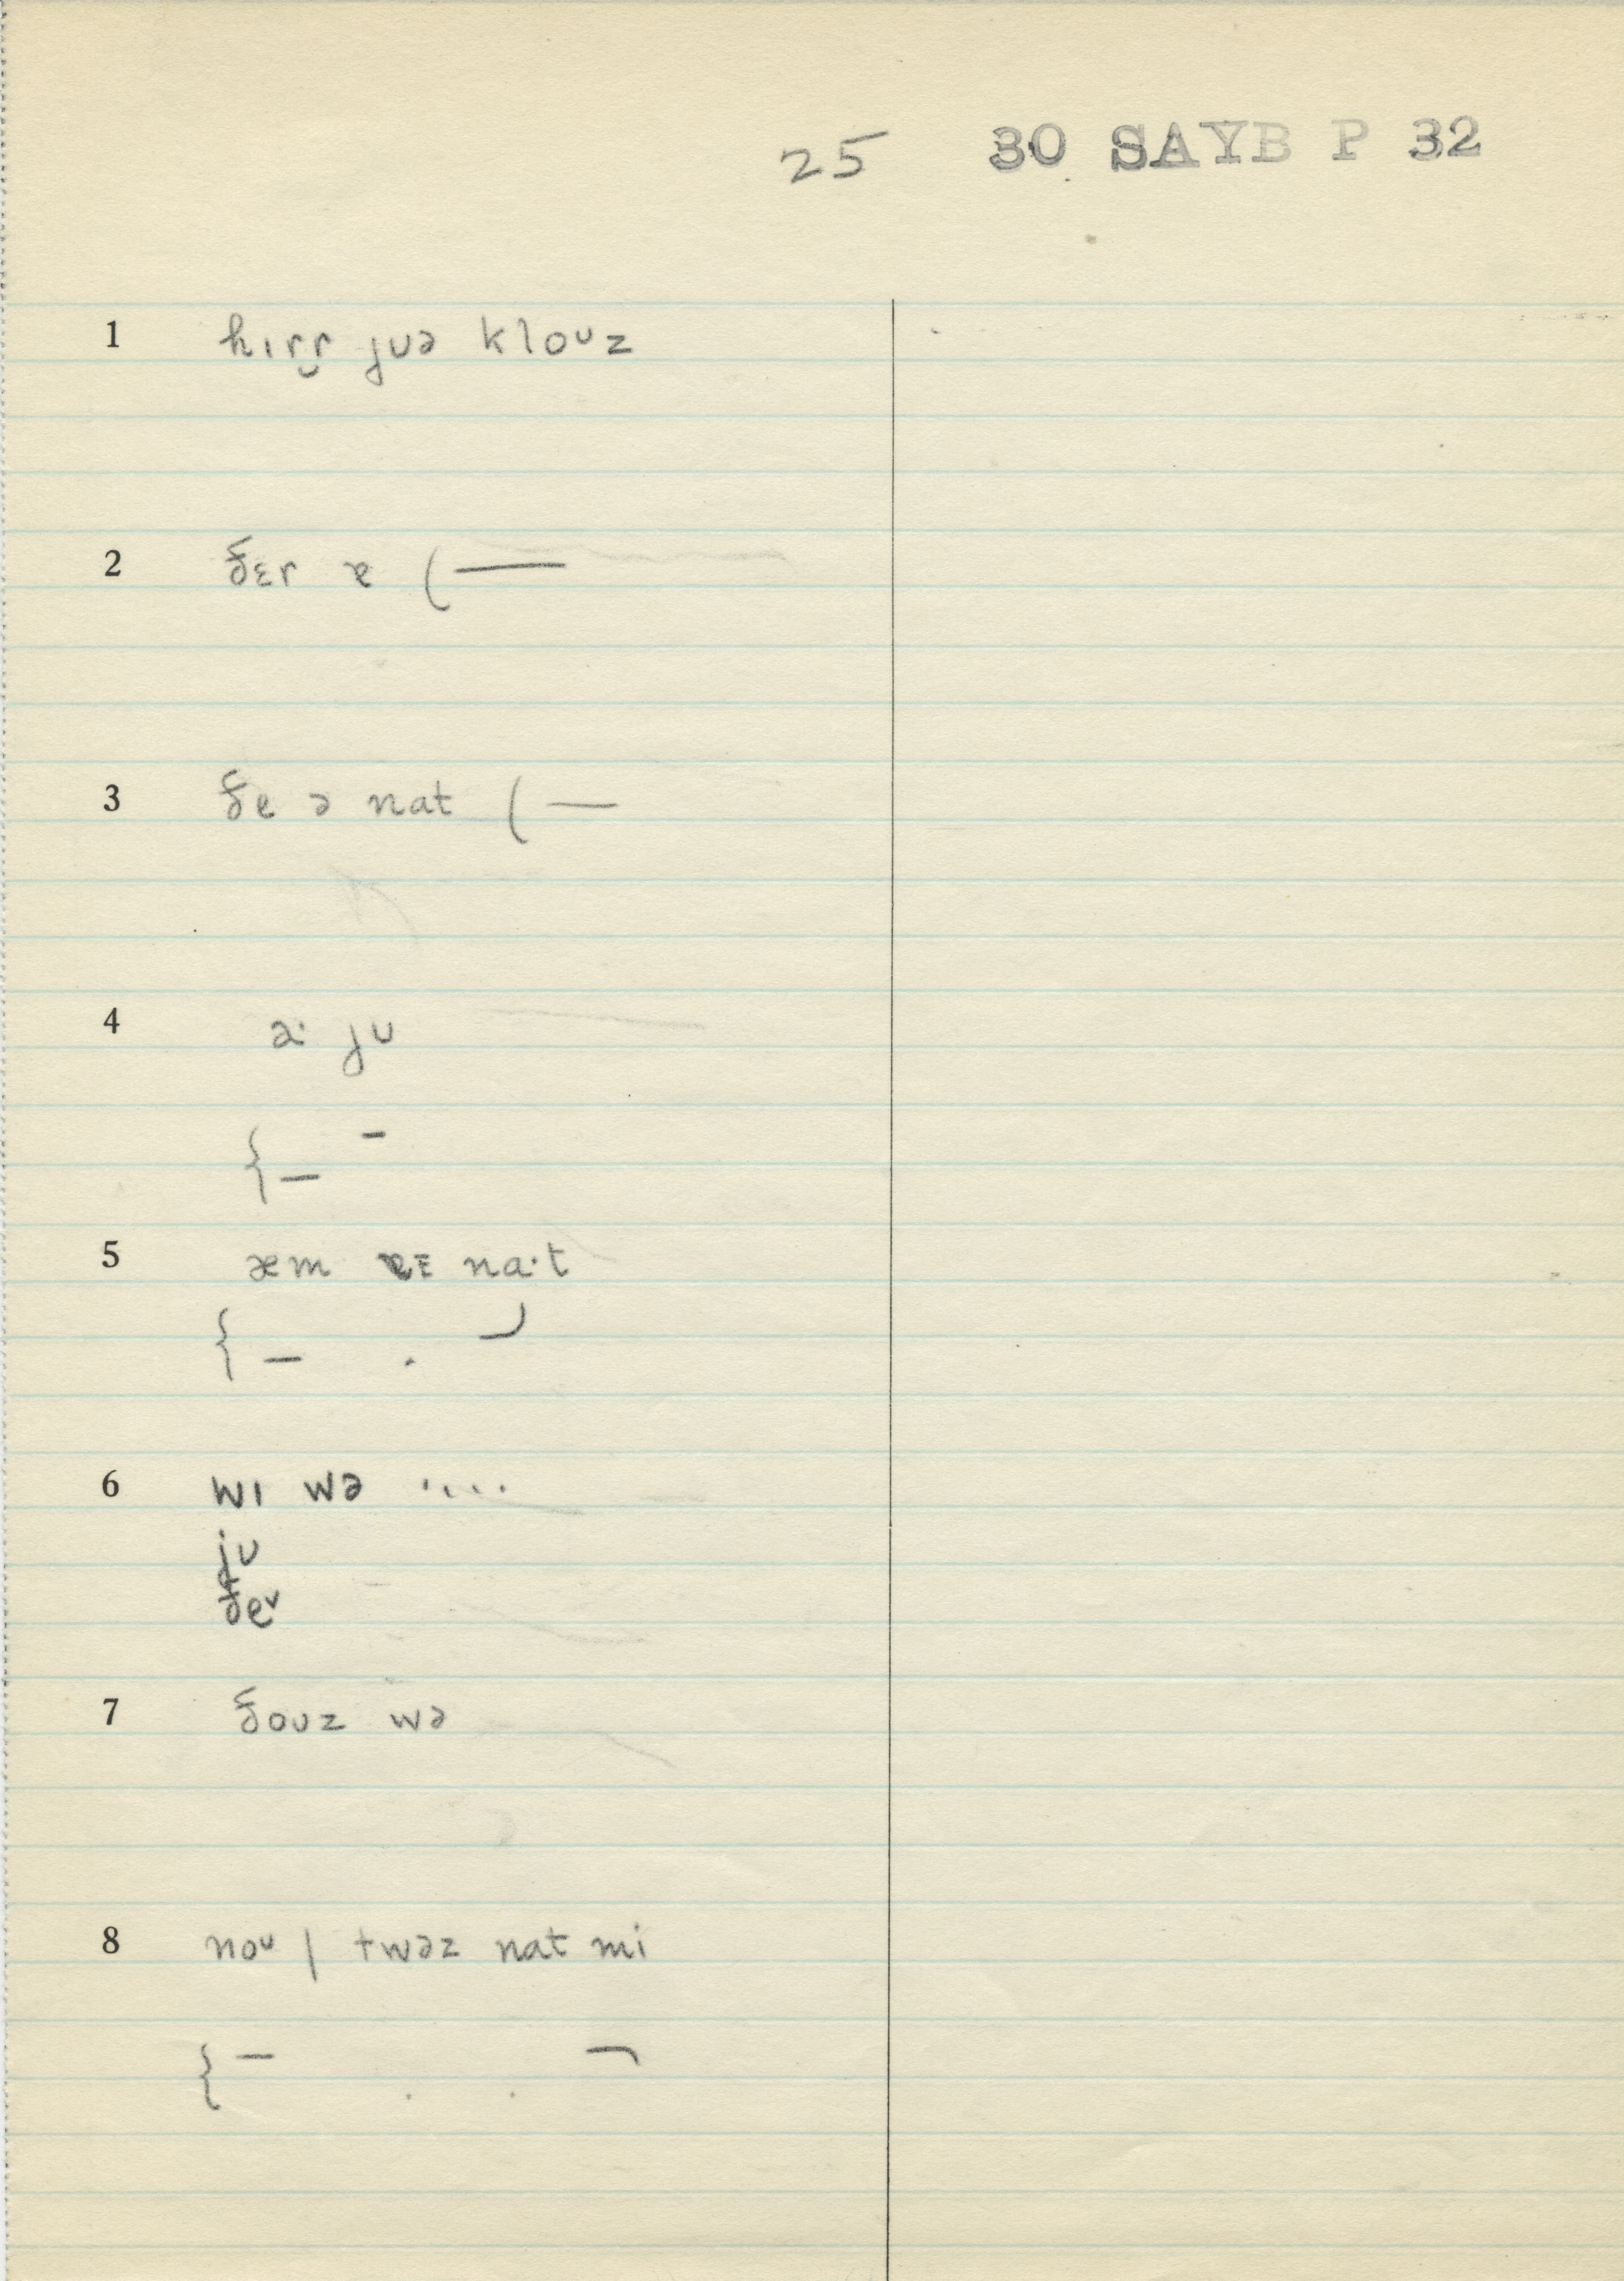 25 30 SAYB P 32
1 hɪɾɾ̮ jʊə kloᴜz
2 ðɛɾ ɐ (—
3 ðe ə nat (—
4 a· jʊ
{– –
5 æm na·t
{– .
6 wɪ wə ....
jʊ
ðe˅
7 ðoʊz wə
8 noᴜ | twəz nat mi
{– . . ¬